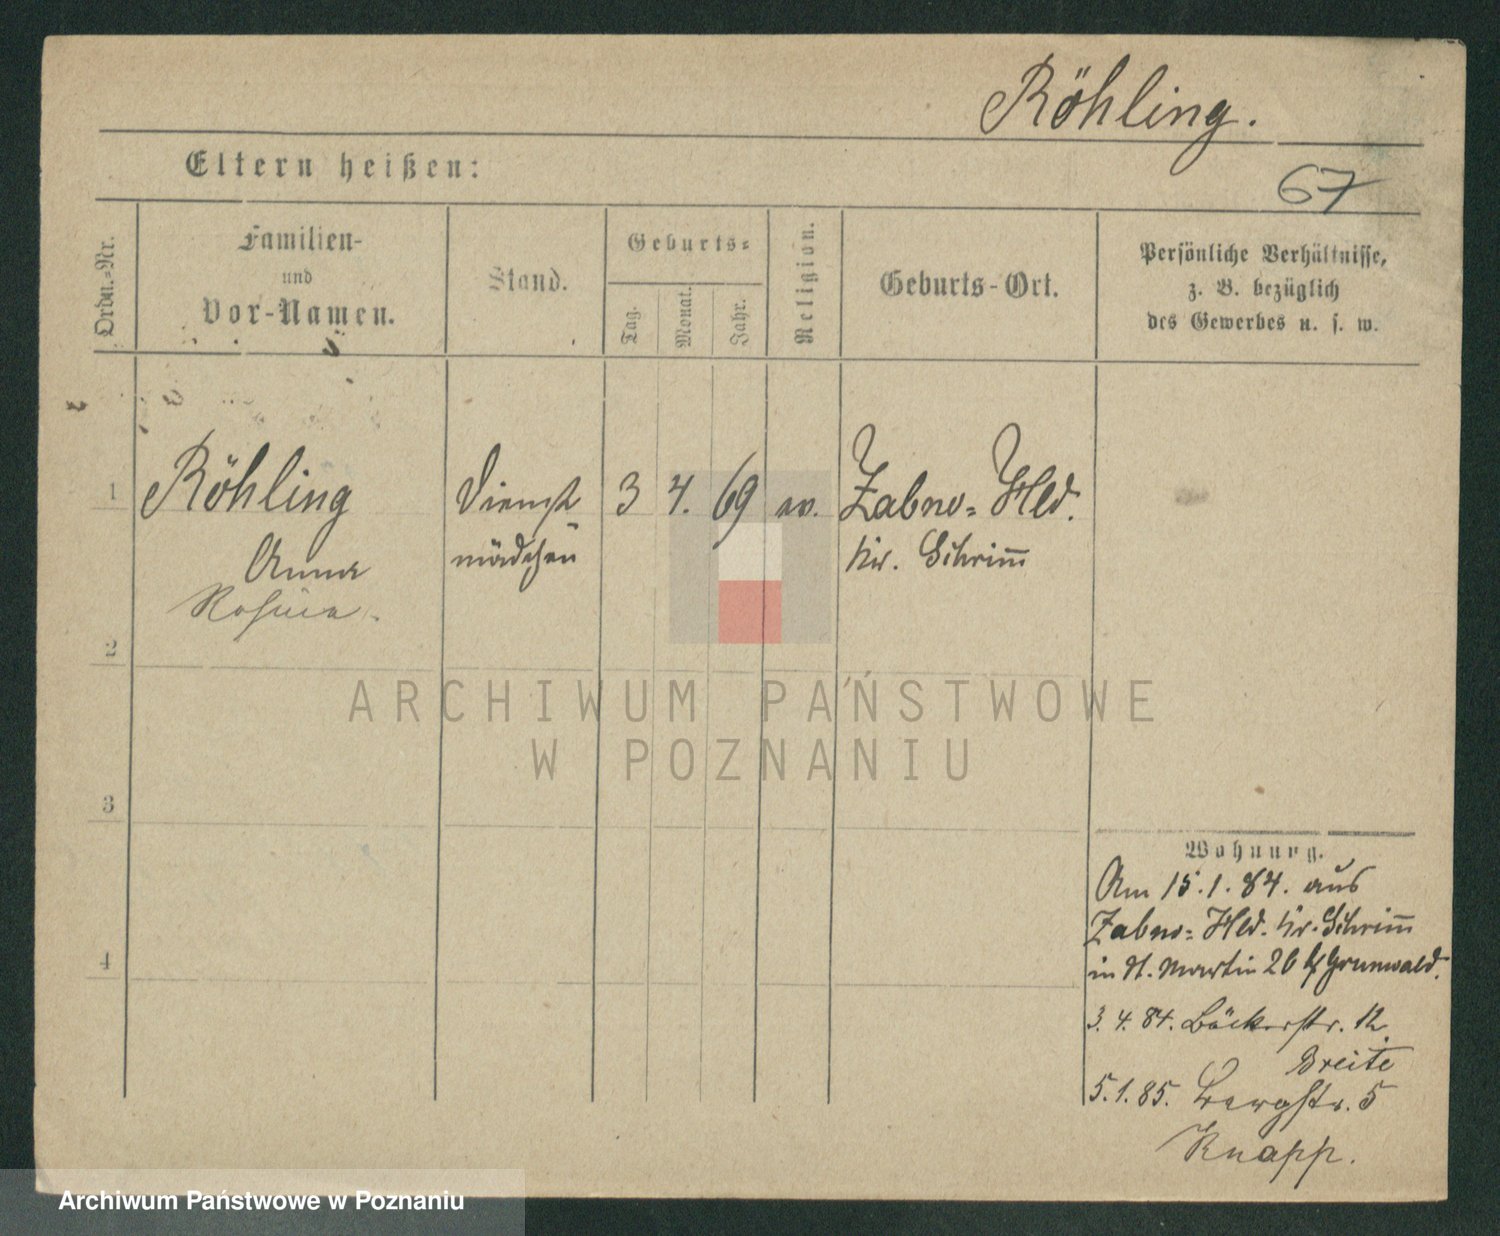 Röhling.
Eltern heißen:
67
Ordn.-Nr.
Familien-
und
Vor-Namen.
Stand.
Geburts-
Tag.
Monat.
Jahr.
Religion.
Geburts-Ort.
Persönliche Verhältnisse,
z. B. bezüglich
des Gewerbes u. s. w.
1 Röhling Dienst 3 4. 69 ev. Zabno- Hld.
mädchen Kr. Schrim̄
Anna
Rosina.
2
ARCHIWUM PAŃSTWOWE
W POZNANIU
3
Wohnung.
Am 15.1.84. aus
Zabno- Hld. Kr. Schrim̄
4
in St. Martin 26 b/ Grunwald.
3. 4. 84. Bäckerstr. 12.
Breite
5.1.85. Bergstr. 5
Knapp.
Archiwum Państwowe w Poznaniu